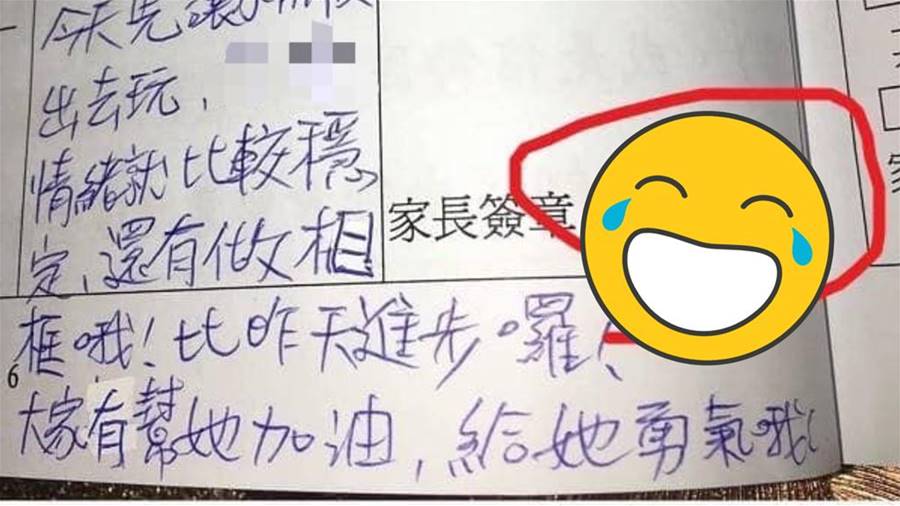 今天先讓
出去玩，
情緒就比較穩
定，還有做文相
框哦！比昨天進步囉！
大家有幫她加油，給她勇氣哦！
家長簽章
6